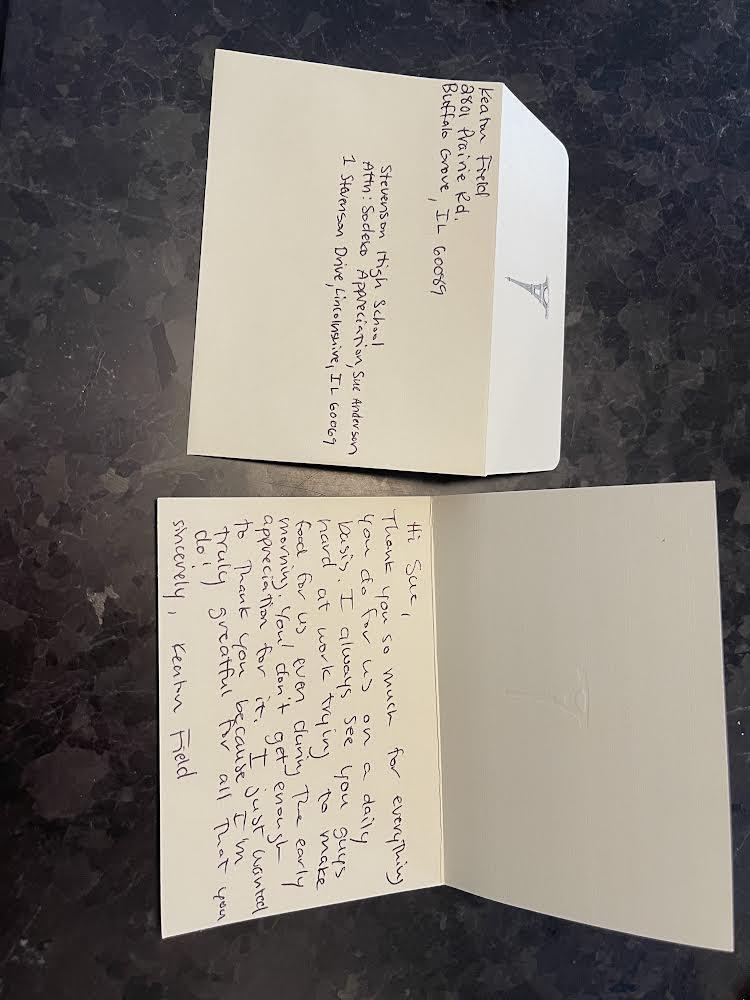 Keaton Field
2801 Prairie Rd.
Buffalo Grove, IL 60089
Stevenson High School
Attn: Sodexo Appreciation, Sue Anderson
1 Stevenson Drive, Lincolnshire, IL 60069
Hi Sue,
Thank you so much for everything
you do for us on a daily
basis. I always see you guys
hard at work trying to make
food for us even during the early
morning. You don't get enough
appreciation for it. I just wanted
to thank you because I'm
truly greatful for all that you
do!
sincerely, Keaton Field